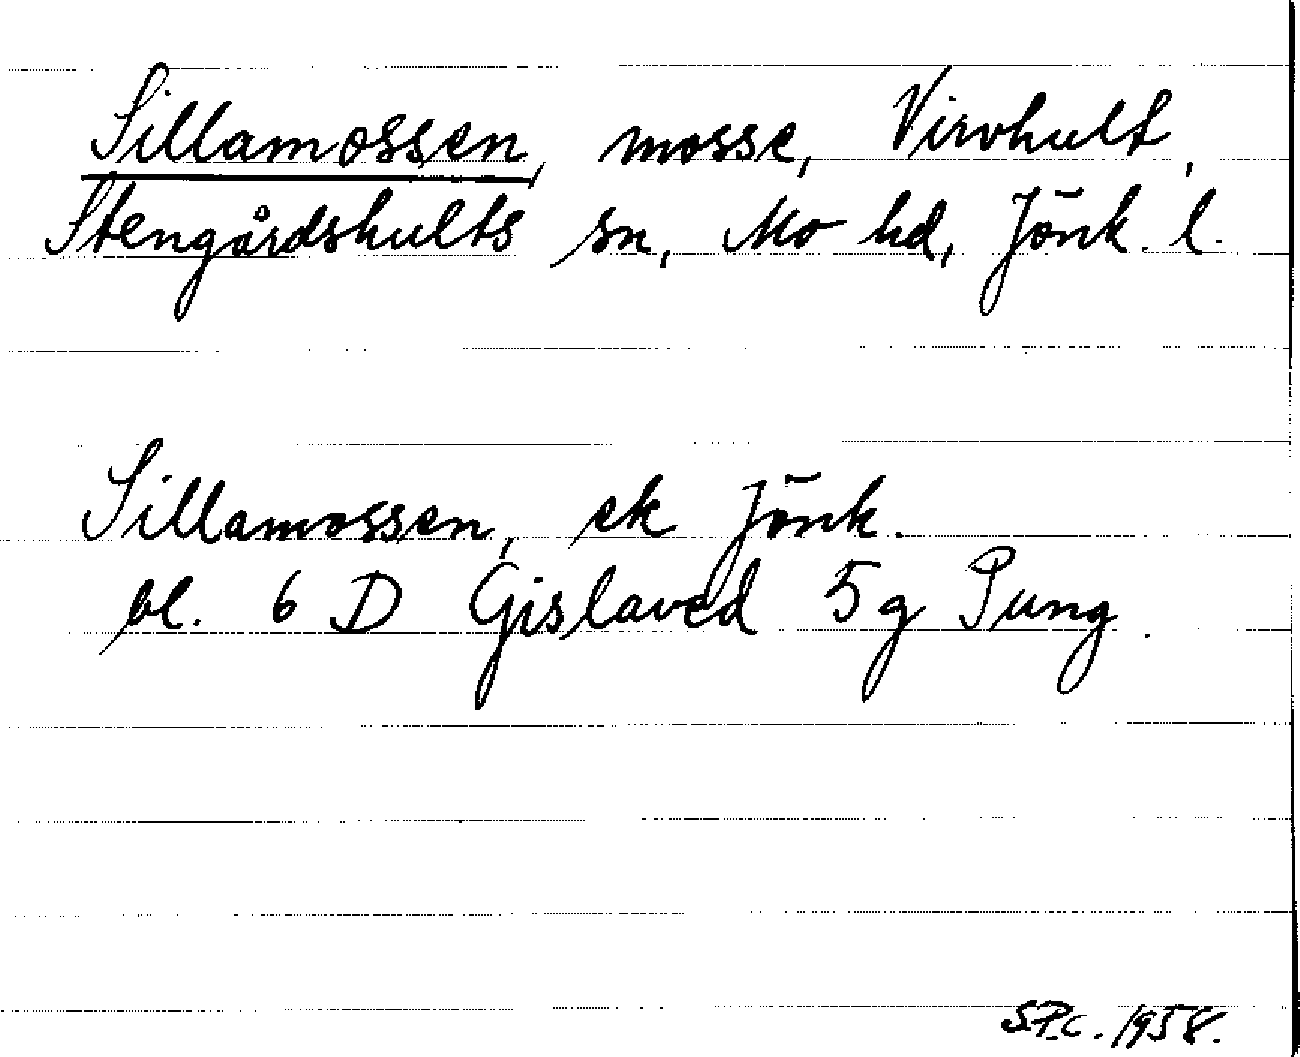 Sillamossen, mosse, Virvhult,
Stengårdshults sn, Mo hd, Jönk. l.
Sillamossen, ek Jönk.
bl. 6 D Gislaved 5g Pung.
S.P.c. 1958.